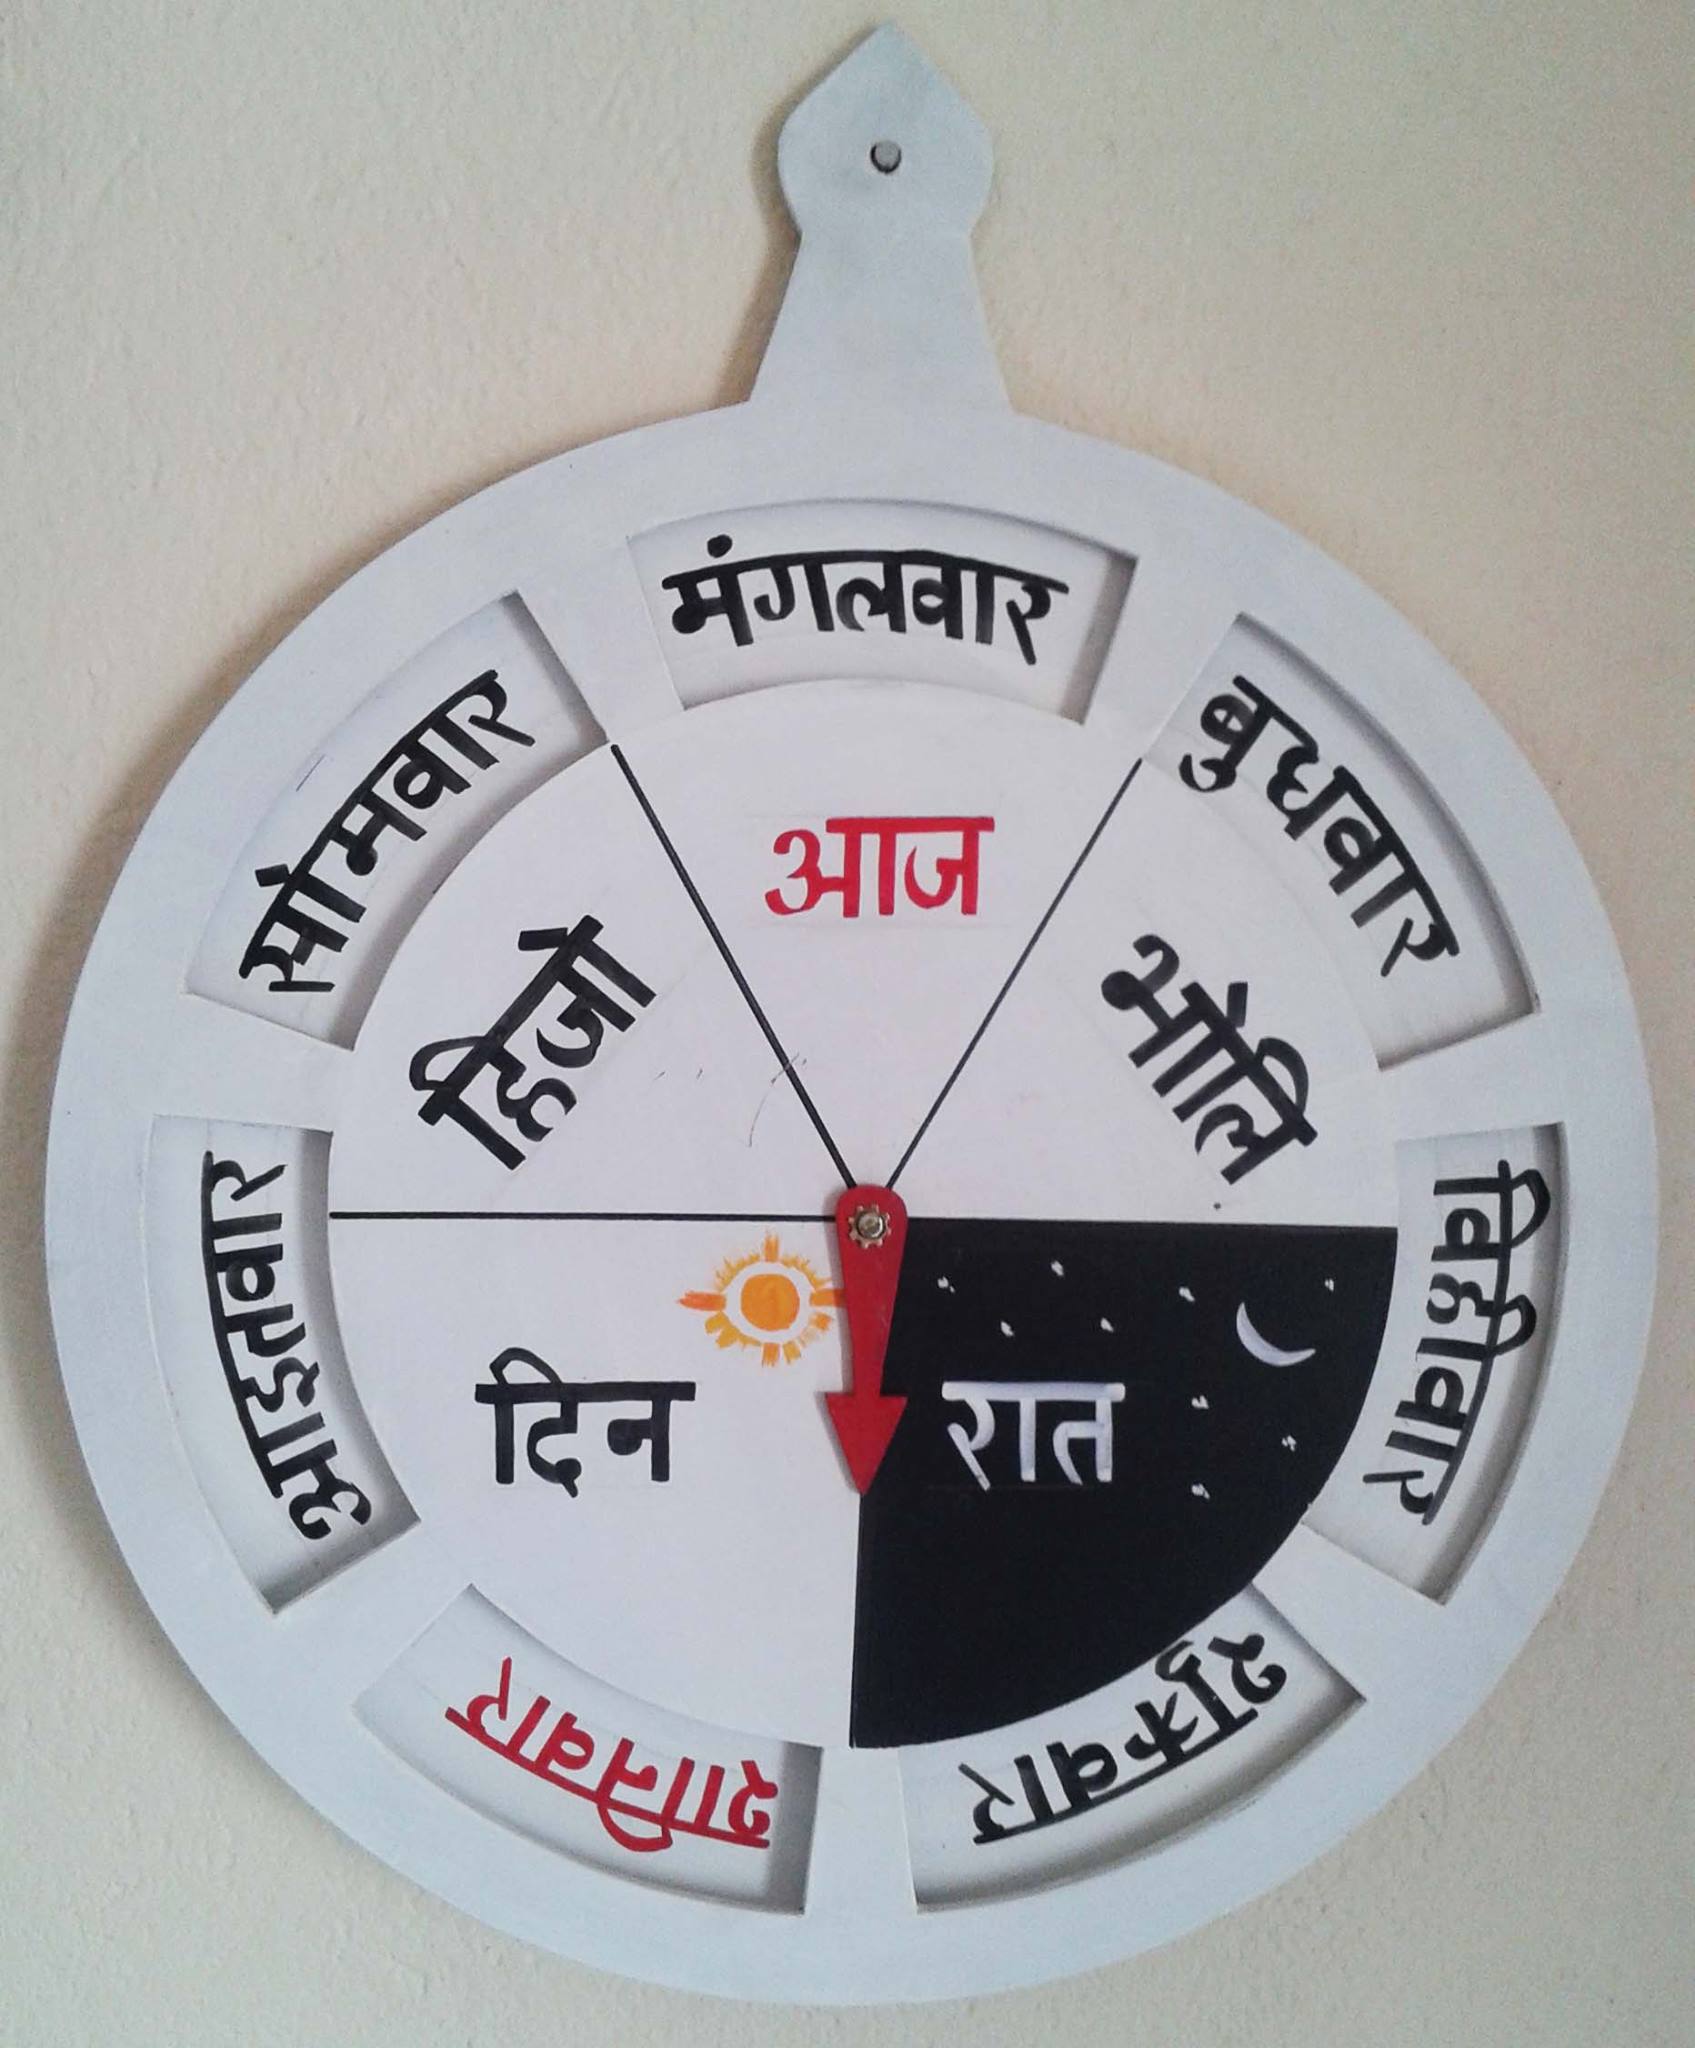 मंगलवार
बुधवार
विहीवार
शुक्रवार
शनिवार
आइतवार
सोमवार
आज
हिजो
भोलि
दिन
रात